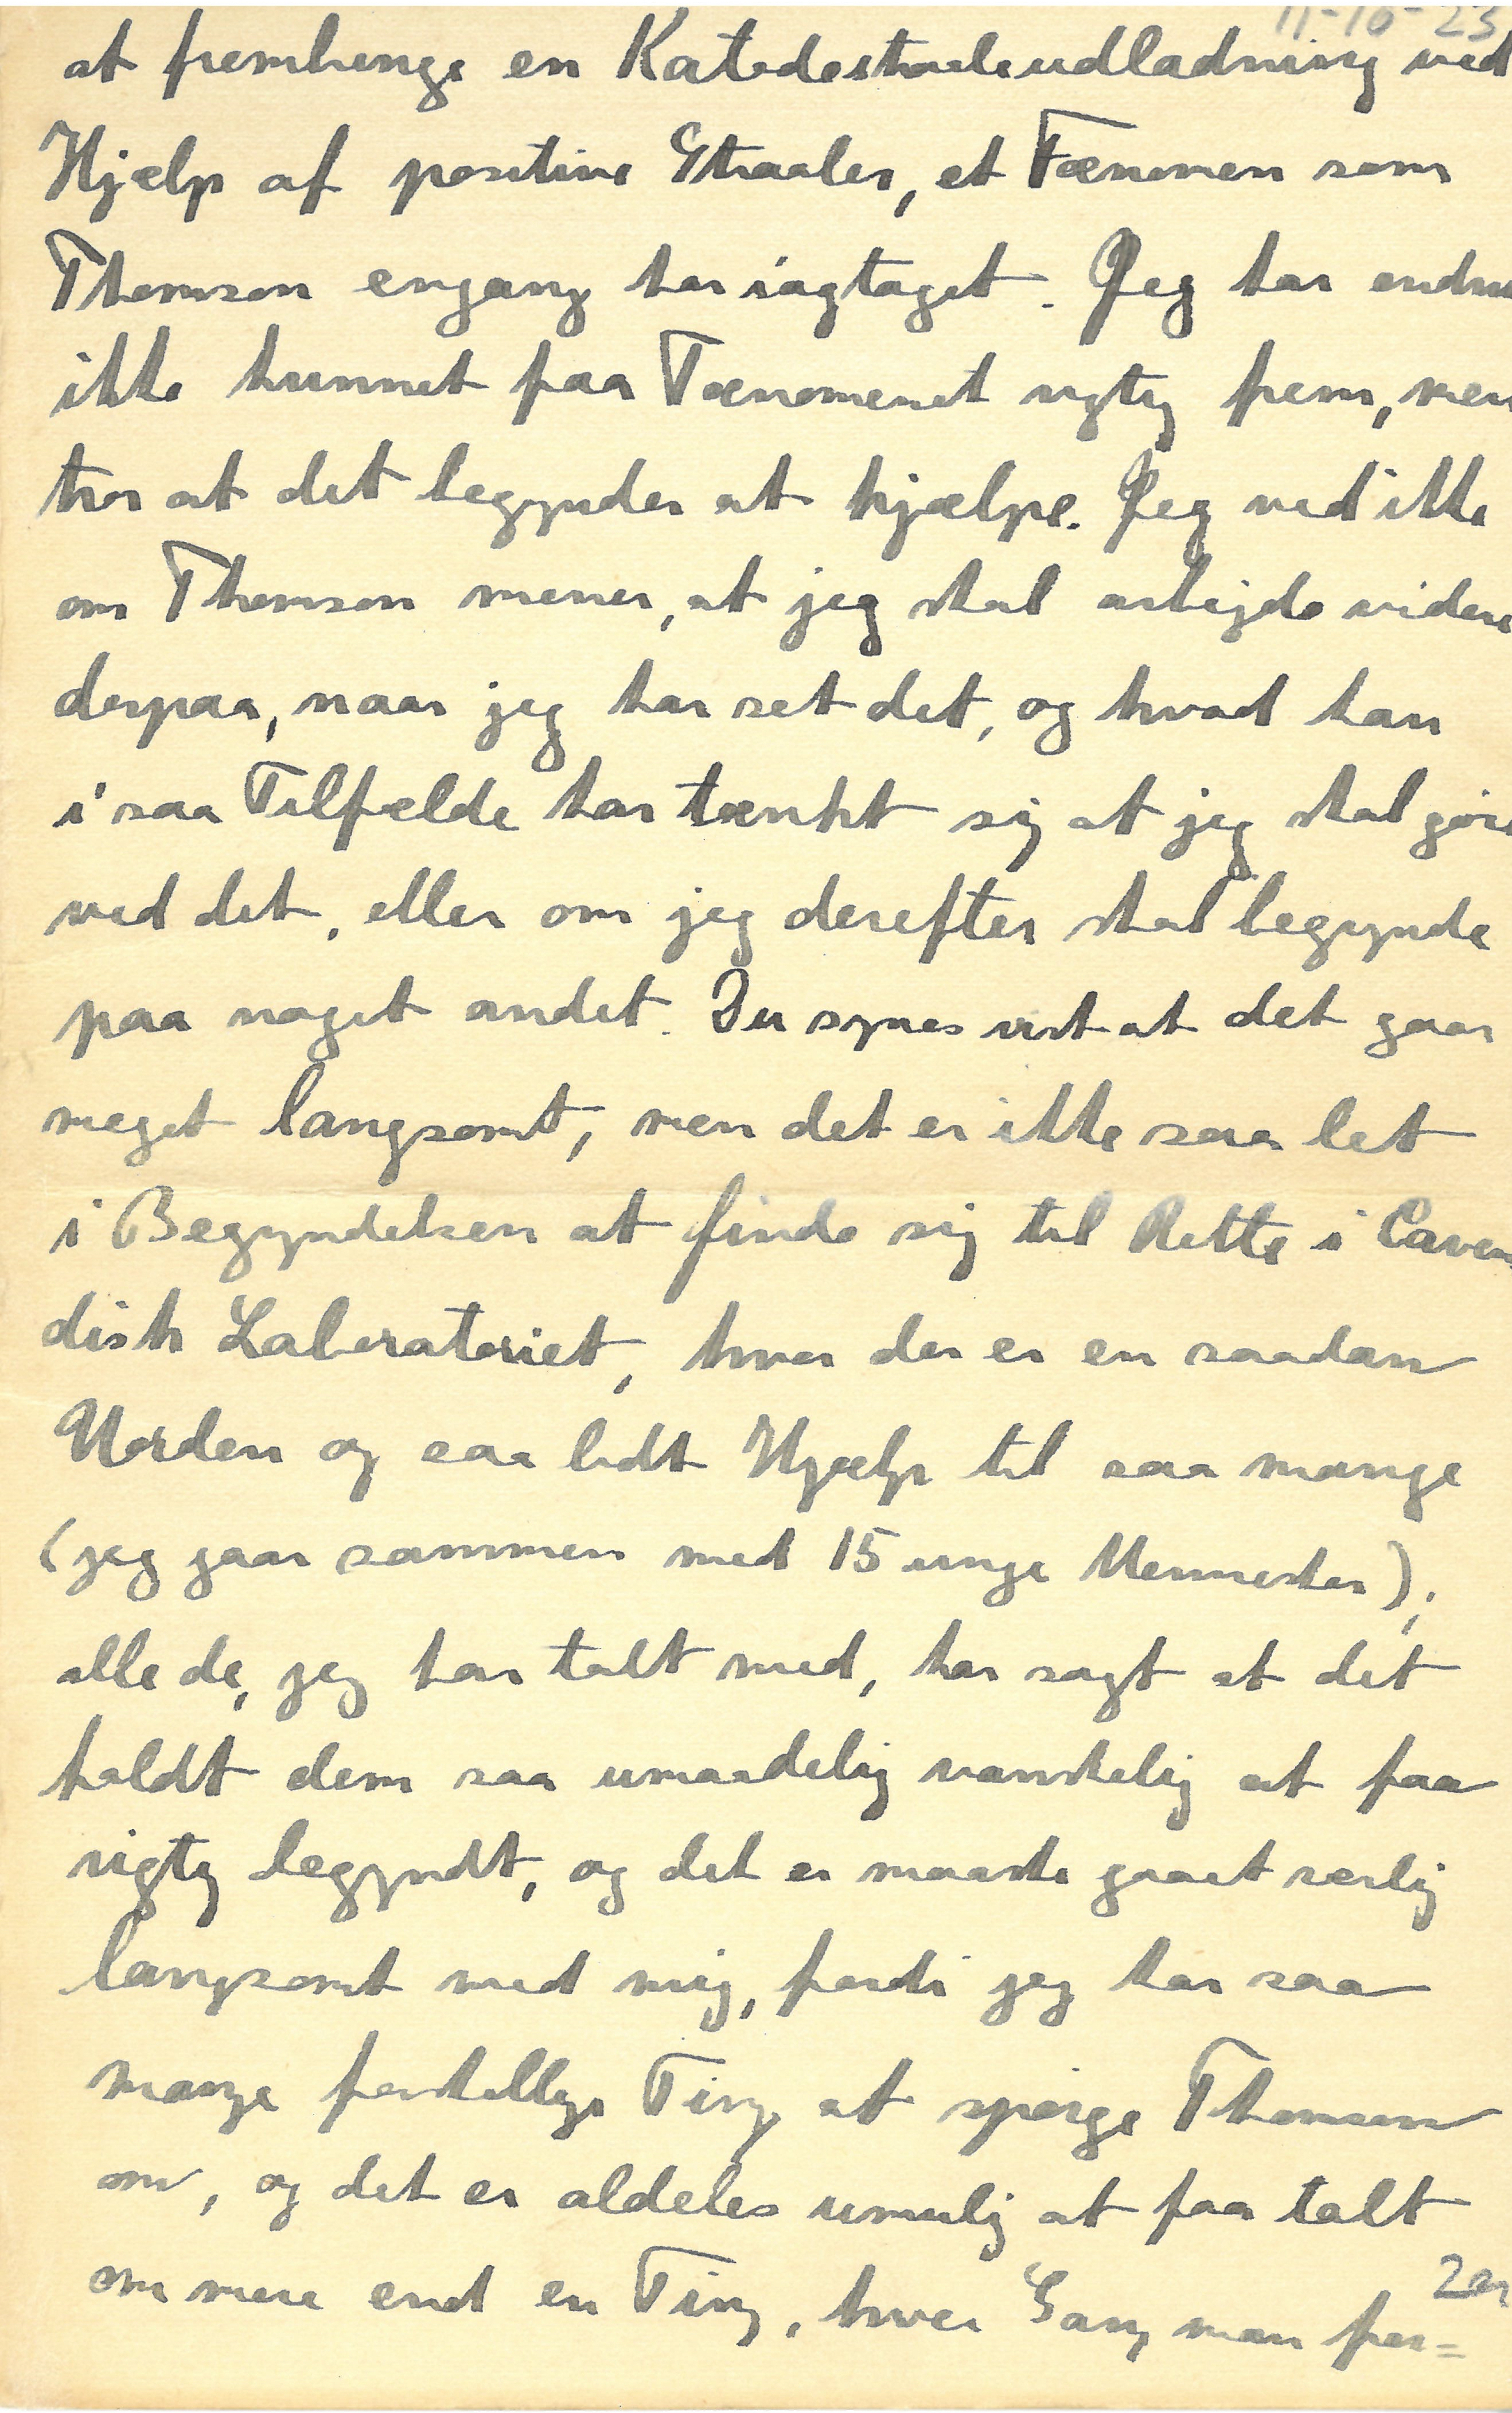 11-10-23
at frembringe en Katodestraaleudladning ved
Hjælp af positive Straaler, et Fænomen som
Thomson engang har iagtaget. Jeg har endnu
ikke kunnet faa Fænomenet rigtig frem, men
tror at det begynder at hjælpe. Jeg ved ikke
om Thomson mener, at jeg skal arbejde videre
derpaa, naar jeg har set det, og hvad han
i saa Tilfælde har tænkt sig at jeg skal gøre
ved det, eller om jeg derefter skal begynde
paa noget andet. Du synes vist at det gaar
meget langsomt, men det er ikke saa let
i Begyndelsen at finde sig til Rette i Caven
dish Laboratoriet, hvor der er en saadan
Uorden og saa lidt Hjælp til saa mange
(jeg gaar sammen med 15 unge Mennesker);
alle de, jeg har talt med, har sagt at det
holdt dem saa umaadelig vanskelig at faa
rigtig begyndt, og det er maaske gaaet særlig
langsomt med mig, fordi jeg har saa
mange forskellige Ting at spørge Thomson
om, og det er aldeles umulig at faa talt
om mere end en Ting, hver Gang man for=